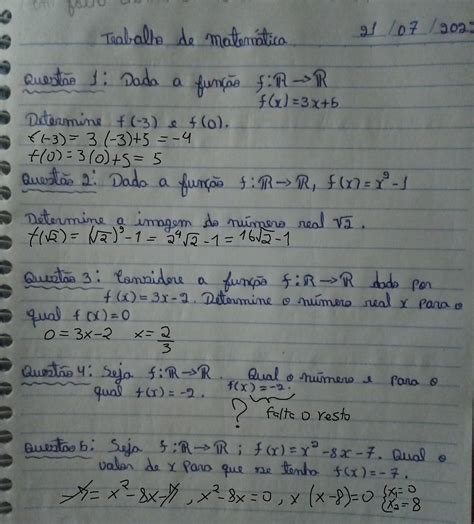 Trabalho de matemática 21/07/202
Questão 1: Dada a função f: R → R
f(x)=3x+5
Determine f(-3) e f(0).
f(-3) = 3(-3)+5 = -4
f(0) = 3(0)+5 = 5
Questão 2: Dada a função f: R → R, f(x)=x⁹-1
Determine a imagem do número real √2.
f(√2) = (√2)⁹-1 = 2⁴√2-1 = 16√2-1
Questão 3: Considere a função f: R → R dada por
f(x) = 3x-2. Determine o número real x para o
qual f(x)=0
0 = 3x-2 x = 2/3
Questão 4: Seja f: R → R. Qual o número e para o
qual f(x) = -2. f(x) = -2.
? falta o resto
Questão 5: Seja f: R → R; f(x) = x²-8x-7. Qual o
valor de x para que se tenha f(x) = -7.
-7 = x²-8x-7, x²-8x=0, x(x-8)=0 {x₁=0 x₂=8